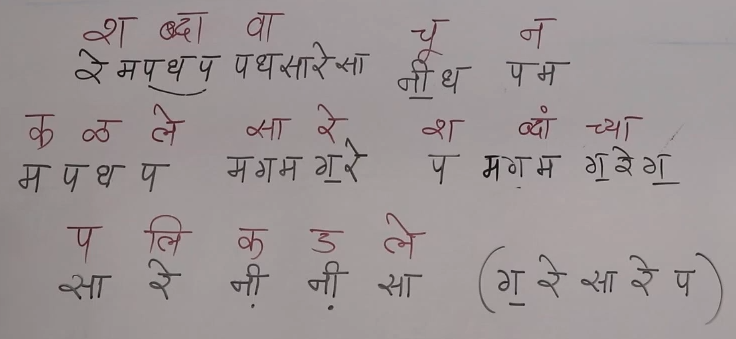 श ब्दा वा चू न
रे मपधप पधसारेसा नी॒ध पम
क ळ ले सा रे श ब्दां च्या
म प ध प मगम ग॒रे प मग़म ग॒रेग॒
प लि क ड ले
सा रे नी़ नी़ सा (ग॒ रे सा रे प)